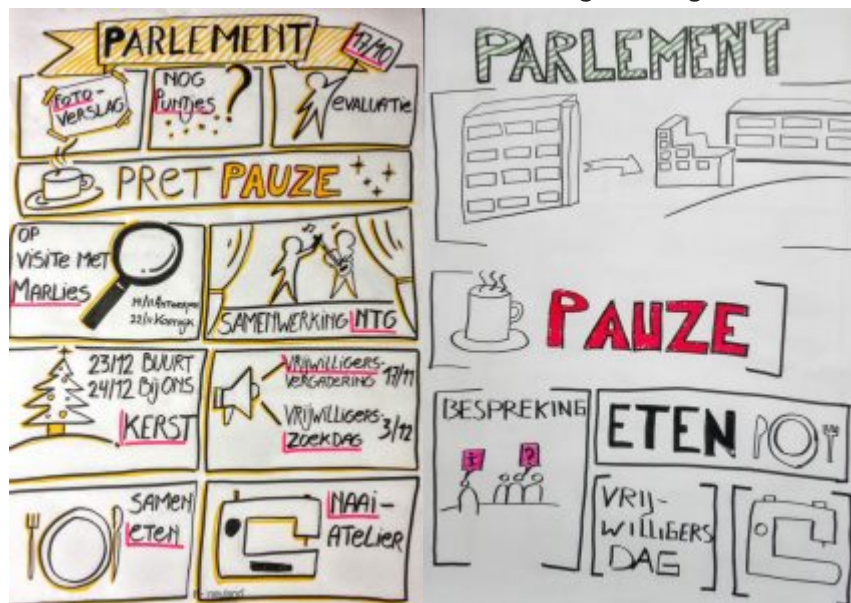 PARLEMENT
17/10
FOTO-
VERSLAG
NOG
PUNTJES
?
EVALUATIE
PRET PAUZE
OP
VISITE MET
MARLIES
SAMENWERKING NTG
23/12 BUURT
24/12 Bij ONS
KERST
VRIJWILLIGERS-
VERGADERING 17/11
VRIJWILLIGERS-
ZOEKDAG 3/12
SAMEN
ETEN
NAAi-
ATELIER
PARLEMENT
PAUZE
BESPREKING
i
?
ETEN
VRIJ-
WILLIGERS
DAG